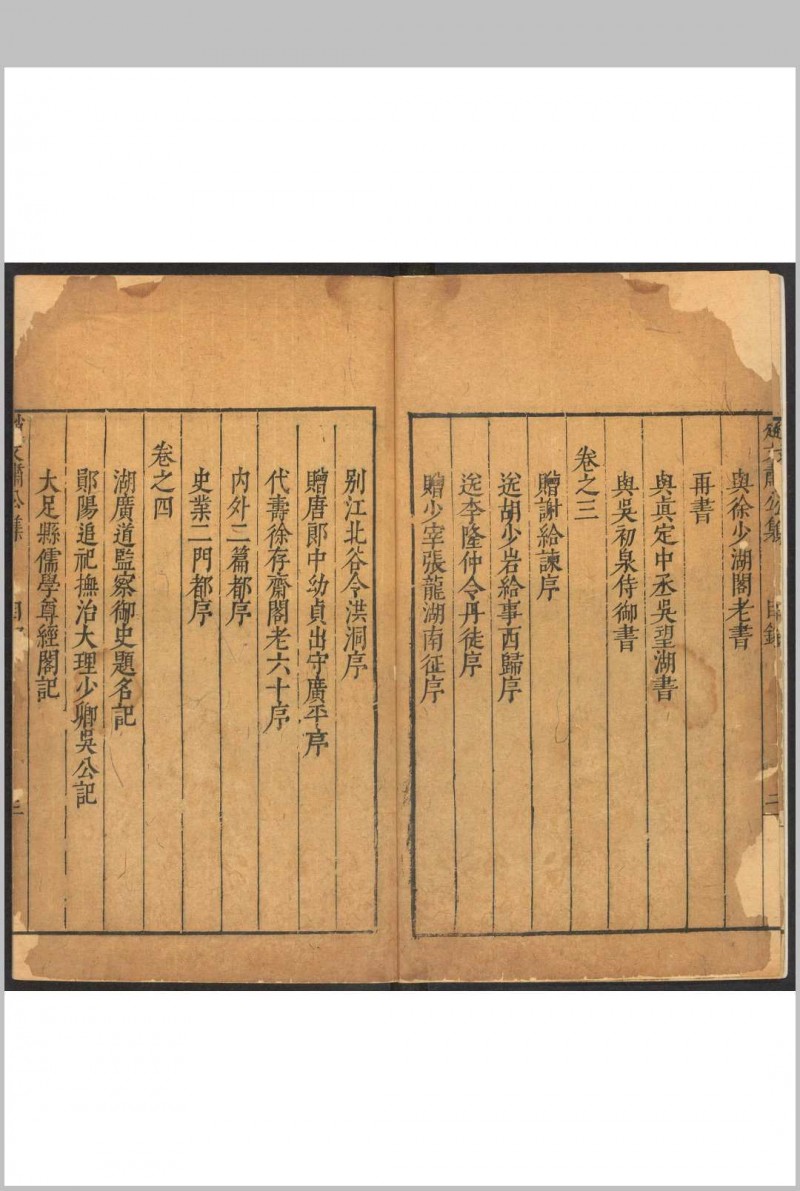 趙文肅公集　目錄　二
與徐少湖閣老書
再書
與真定中丞吳望湖書
與吳初泉侍御書
卷之三
贈謝給諫序
送胡少岩給事西歸序
送李隆仲令丹徒序
贈少宰張龍湖南征序
別江北谷令洪洞序
贈唐郎中幼貞出守廣平序
代壽徐存齋閣老六十序
內外二篇都序
史業二門都序
卷之四
湖廣道監察御史題名記
鄖陽追祀撫治大理少卿吳公記
大足縣儒學尊經閣記
文肅公集　目　三